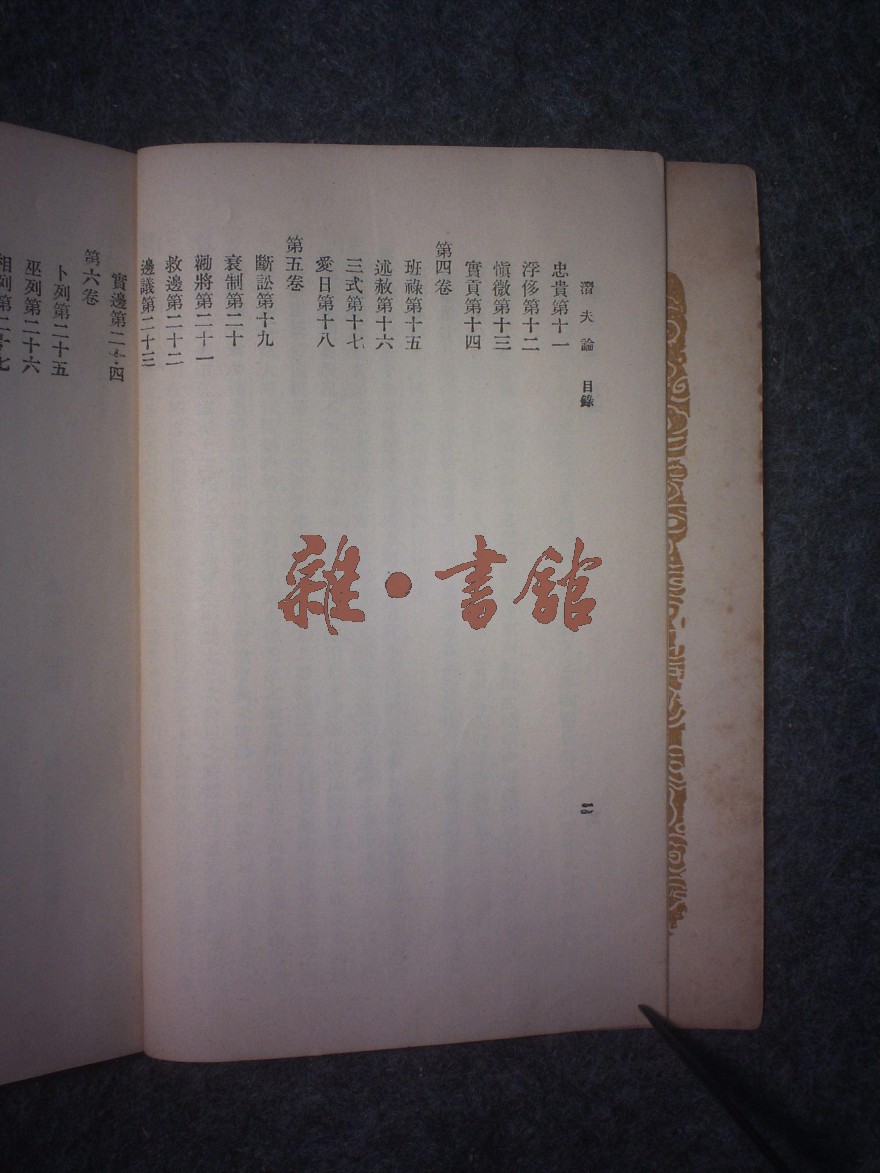 潛夫論 目錄
忠貴第十一
浮侈第十二
愼微第十三
實貢第十四
第四卷
班祿第十五
述赦第十六
三式第十七
愛日第十八
第五卷
斷訟第十九
衰制第二十
勸將第二十一
救邊第二十二
邊議第二十三
實邊第二十四
第六卷
卜列第二十五
巫列第二十六
相列第二十七
二
雜·書館